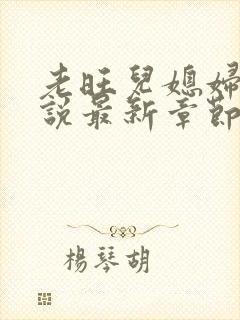 老旺兒媳婦
說最新章節
楊琴胡